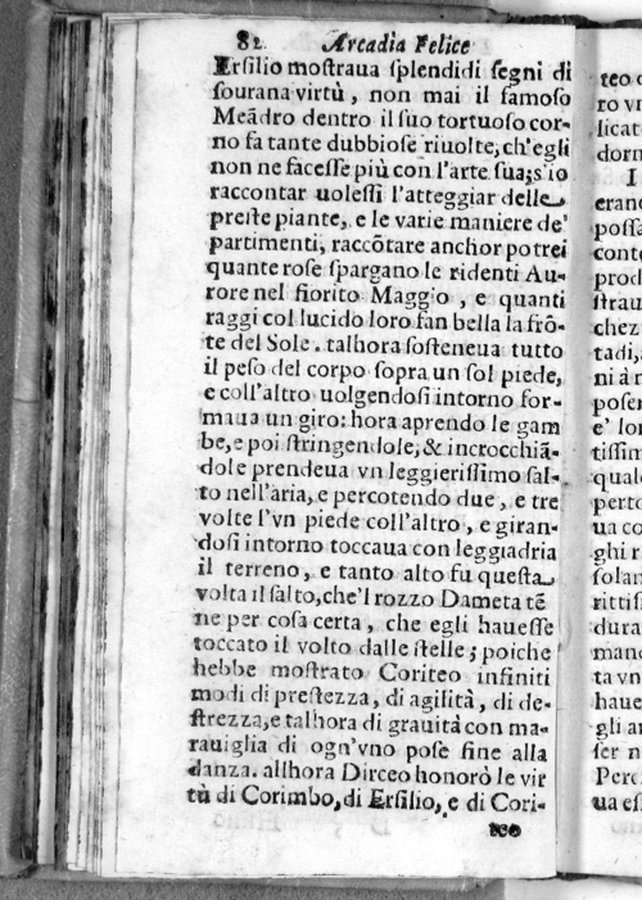 82 Arcadia Felice
Ersilio mostraua splendidi segni di
sourana virtù, non mai il famoso
Meãdro dentro il suo tortuoso cor-
no fa tante dubbiose riuolte, ch'egli
non ne facesse più con l'arte sua; s'io
raccontar uolessi l'atteggiar delle
preste piante, e le varie maniere de'
partimenti, raccõtare anchor potrei
quante rose spargano le ridenti Au-
rore nel fiorito Maggio, e quanti
raggi col lucido loro fan bella la frõ-
te del Sole. talhora sosteneua tutto
il peso del corpo sopra un sol piede,
e coll'altro uolgendosi intorno for-
maua un giro: hora aprendo le gam
be, e poi stringendole, & incrocchiã-
dole prendeua vn leggierissimo sal-
to nell'aria, e percotendo due, e tre
volte l'vn piede coll'altro, e giran-
dosi intorno toccaua con leggiadria
il terreno, e tanto alto fu questa
volta il salto, che'l rozzo Dameta tẽ
ne per cosa certa, che egli hauesse
toccato il volto dalle stelle; poiche
hebbe mostrato Coriteo infiniti
modi di prestezza, di agilità, di de-
strezza, e talhora di grauità con ma-
rauiglia di ogn'vno pose fine alla
danza. allhora Dirceo honorò le vir
tù di Corimbo, di Ersilio, e di Cori-
teo
teo
ro
licat
dorn
I
eran
possa
cont
prod
strau
chez
tadi,
ni à
poser
e' lor
tissim
qual
perto
ua co
ghi r
solan
rittis
dura
man
ta vn
haue
gli a
ser n
Perc
ua es